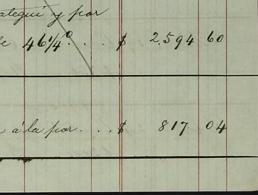 ategui y por
de 46¼%. . . . $ 2.594 60
a á la par. . . . $ 817 04